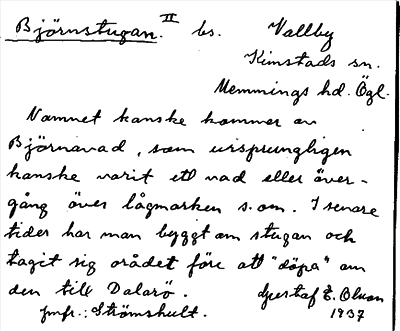 Björnstugan. II bs. Vallby
Kimstads sn.
Memmings hd. Ögl.
Namnet kanske kommer av
Björnavad, som ursprungligen
kanske varit ett vad eller över-
gång över lågmarken s. om. I senare
tider har man byggt om stugan och
tagit sig orådet före att "döpa" om
den till Dalarö. Gustaf E. Olson
jmfr.: Strömshult. 1937